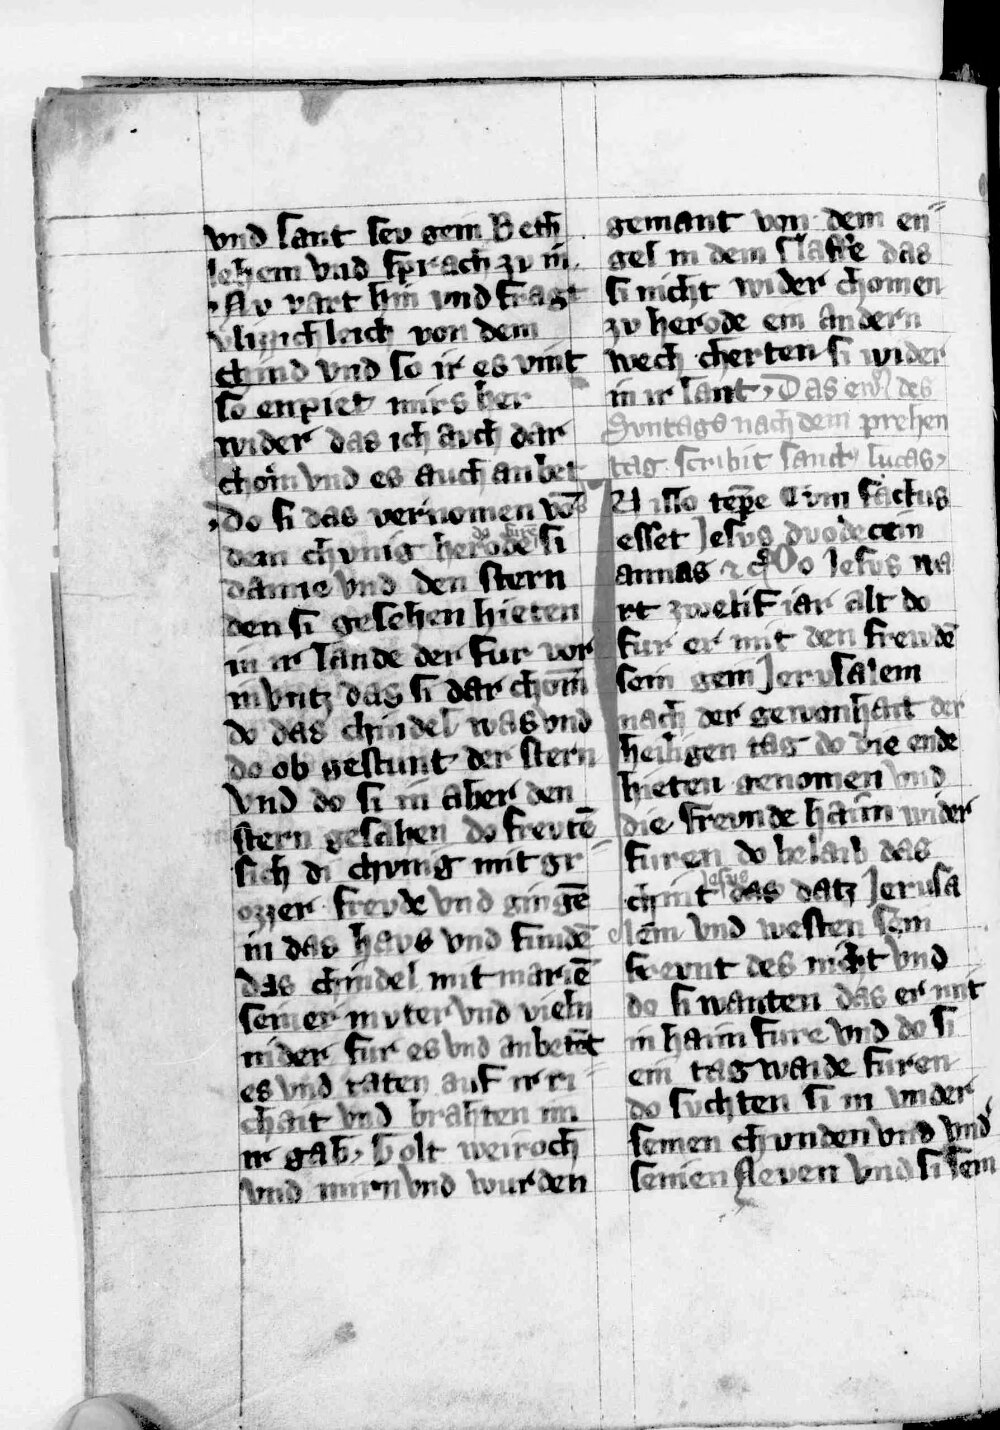 vnd sant sev gein Beth
lehem vnd sprach zv in.
Nv vart hin vnd fragt
vlizzichleich von dem
chind vnd so ir es vint
so enpiet mirs her
wider das ich avch dar
chom vnd es auch anbet
Do si das vernomen vō
dem chvnig herode do fure si
danne vnd den stern
den si gesehen hieten
in ir lande der fur vor
in vntz das si dar chom
do das chindel was vnd
do ob gestunt der stern
vnd do si in aber den
stern gesahen do frevtē
sich di chvnig mit gr
ozzer frevde vnd gingē
in das havs vnd fundē
das chindel mit mariē
seiner mvter vnd vieln
nider fur es vnd anbetēt
es vnd taten auf ir ri
chait vnd brahten im
ir gab, Golt weiroch
vnd mirn vnd wurden
gemant von dem en
gel in dem slaffe das
si nicht wider chomen
zv herode ein andern
wech cherten si wider
in ir lant, Das ew des
Svntags nach dem prehen
tag scribit sanct lucas,
N illo tēpe Cvm factus
esset Jesvs dvodecein
annas Do Jesvs wa
rt zwelif iar alt do
fur er mit den frevdē
sein gein Jervsalem
nach der gewonhait der
heiligen tag do die ende
hieten genomen vnd
die frevnde haim wider
furen do belaib das
chint Jesus das datz Jerusa
lem vnd westen sein
frevnt des nicht vnd
do si wanten das er mit
in haim fure vnd do si
ein tag waide furen
do svchten si in vnder
seinen chvnden vnd vnd
seinen Neven vnd si sein